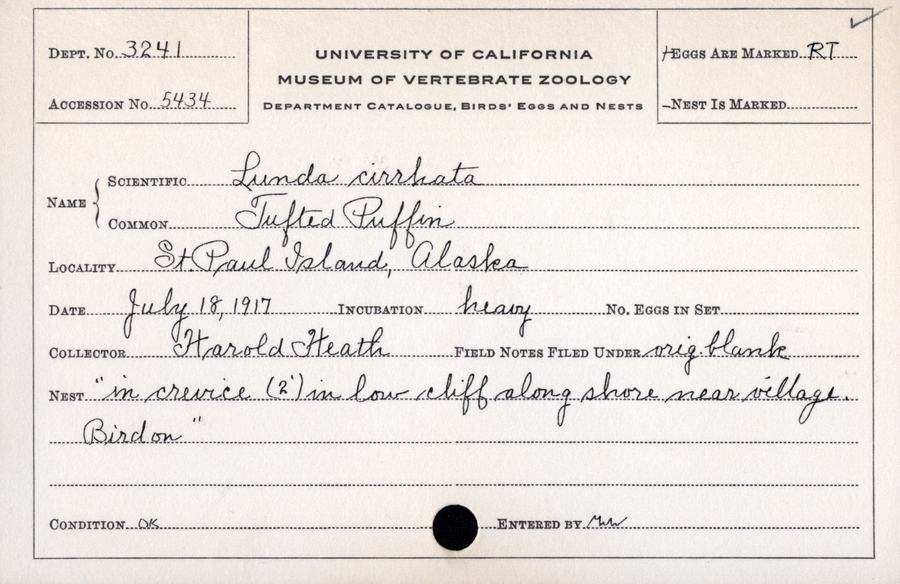 Dept. No. 3241
Accession No. 5434
UNIVERSITY OF CALIFORNIA
MUSEUM OF VERTEBRATE ZOOLOGY
Department Catalogue, Birds' Eggs and Nests
Eggs Are Marked RT
Nest Is Marked
Name
Scientific Lunda cirrhata
Common Tufted Puffin
Locality St. Paul Island, Alaska
Date July 18, 1917 Incubation heavy No. Eggs in Set
Collector Harold Heath Field Notes Filed Under orig. blank
Nest "in crevice (2') in low cliff along shore near village.
Bird on"
Condition OK Entered by